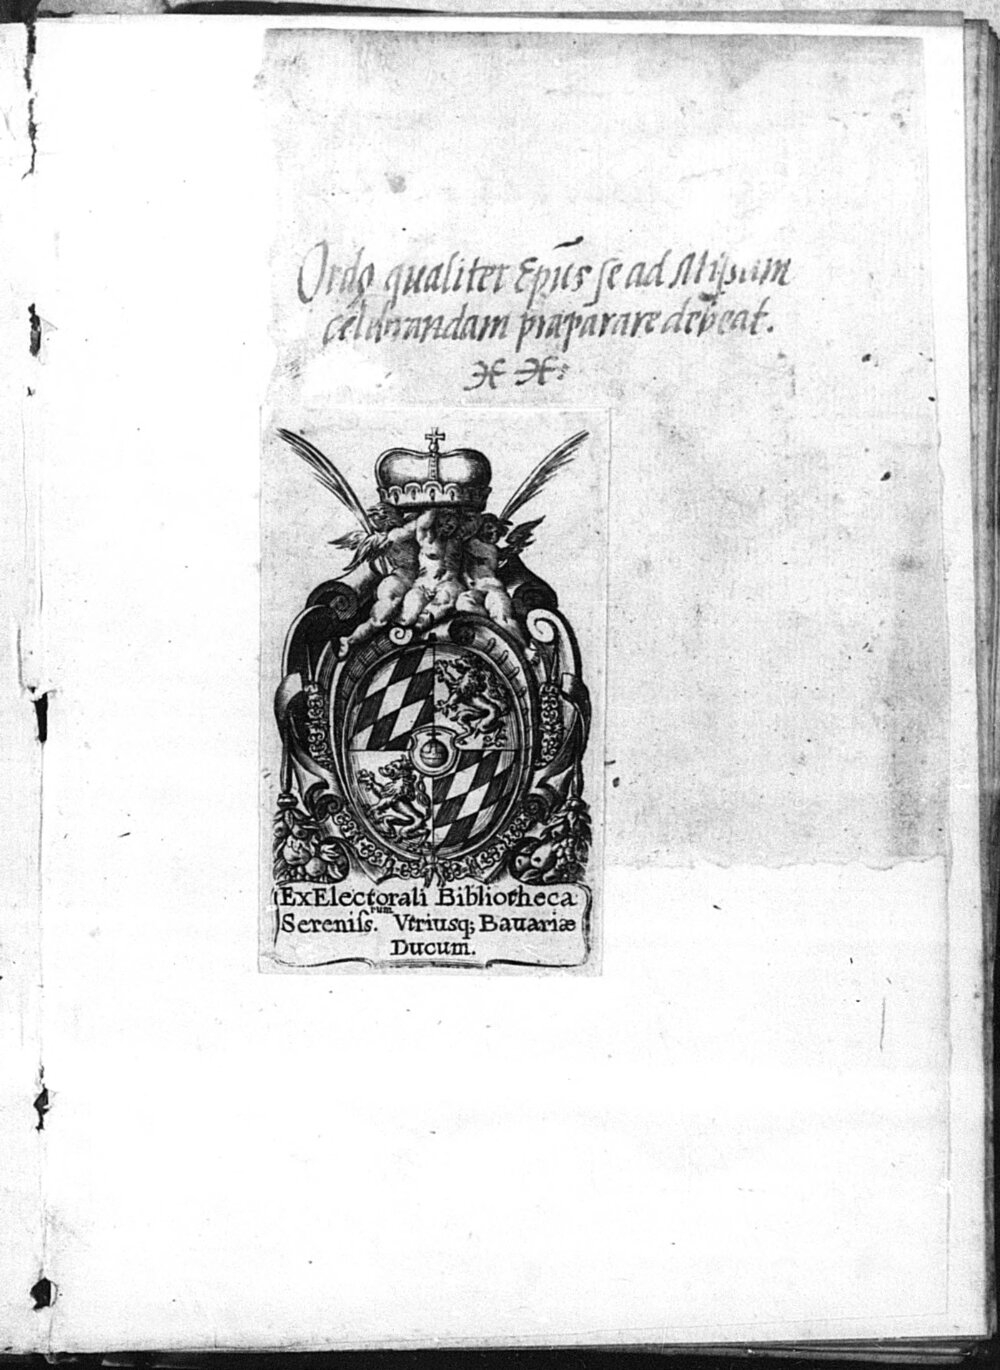 Ordo qualiter Ep̃us se ad Missam
celebrandam præparare debeat.
Ex Electorali Bibliotheca
Sereniſs.rum Vtriusq; Bauariæ
Ducum.